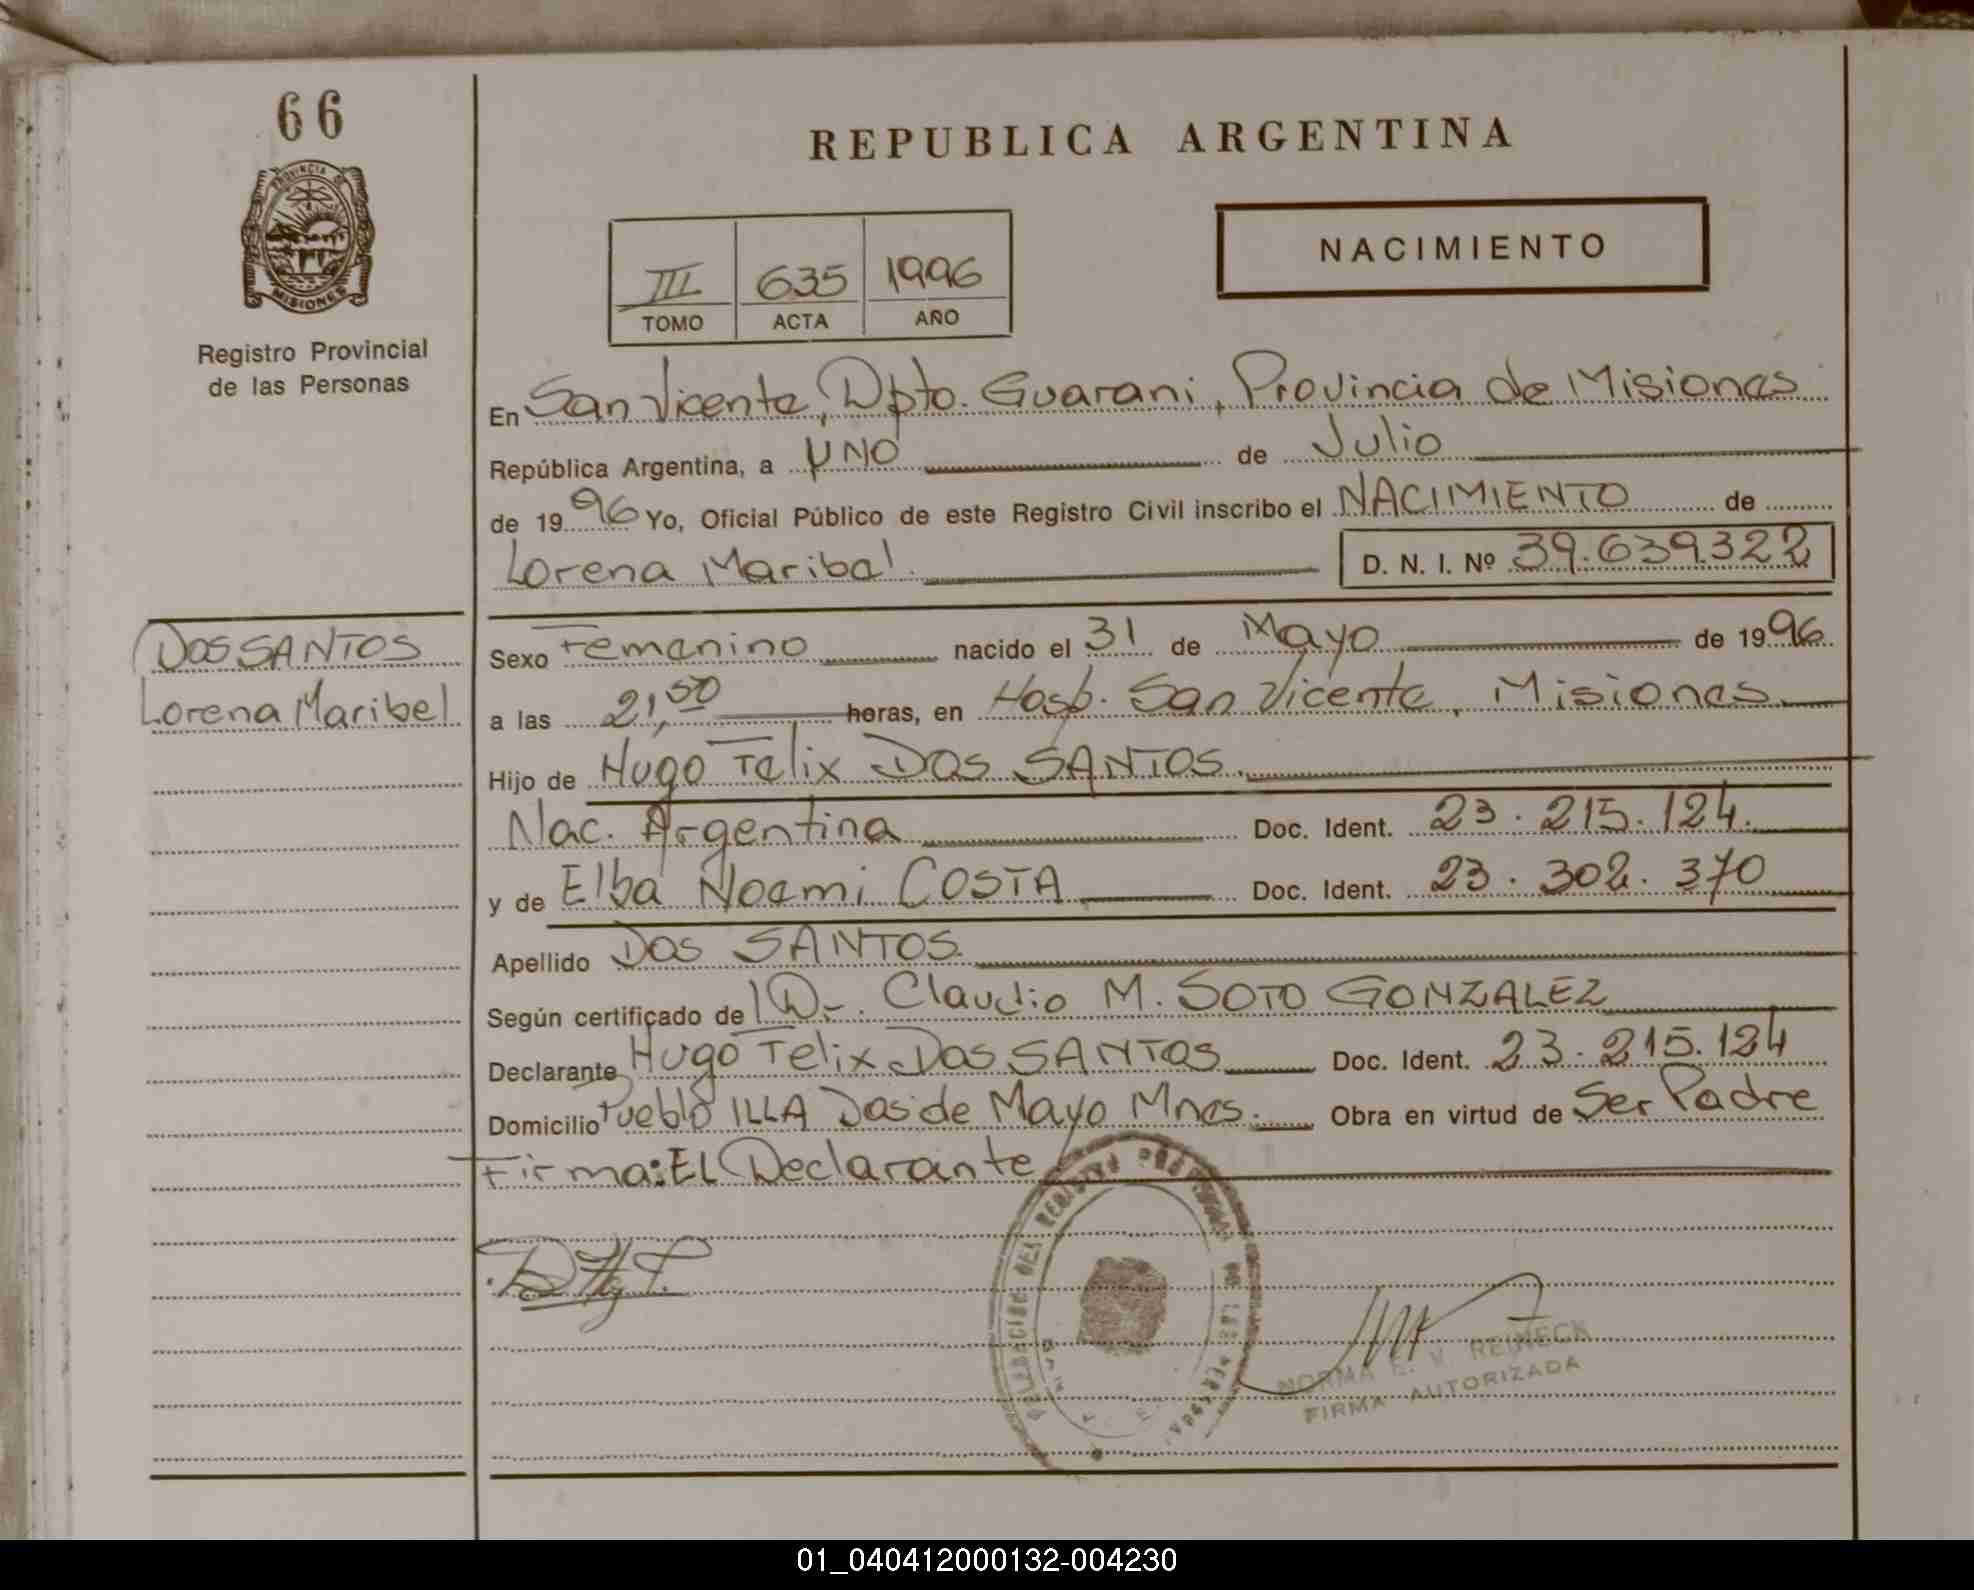 66
PROVINCIA DE
MISIONES
Registro Provincial
de las Personas
DOS SANTOS
Lorena Maribel
REPUBLICA ARGENTINA
III 635 1996
TOMO ACTA AÑO
NACIMIENTO
En San Vicente, Dpto. Guarani, Provincia de Misiones
República Argentina, a UNO de Julio
de 1996 Yo, Oficial Público de este Registro Civil inscribo el NACIMIENTO de
Lorena Maribel. D. N. I. Nº 39.639.322
Sexo Femenino nacido el 31 de Mayo de 1996
a las 21,50 horas, en Hosp. San Vicente, Misiones
Hijo de Hugo Felix DOS SANTOS.
Nac. Argentina Doc. Ident. 23.215.124.
y de Elba Noemi COSTA Doc. Ident. 23.302.370
Apellido DOS SANTOS.
Según certificado de Dr. Claudio M. SOTO GONZALEZ
Declarante Hugo Felix Dos SANTOS Doc. Ident. 23.215.124
Domicilio Pueblo ILLA Dos de Mayo Mnes. Obra en virtud de Ser Padre
Firma: EL Declarante
DEL REGISTRO PROVINCIAL DE LAS PERSONAS
NORMA E. V. REINECK
FIRMA AUTORIZADA
01_040412000132-004230